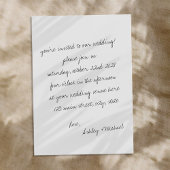 you're invited to our wedding!
please join us
saturday, october 22nd 2022
four o'clock in the afternoon
at your wedding venue here
123 main street city, state
love,
Ashley + Michael